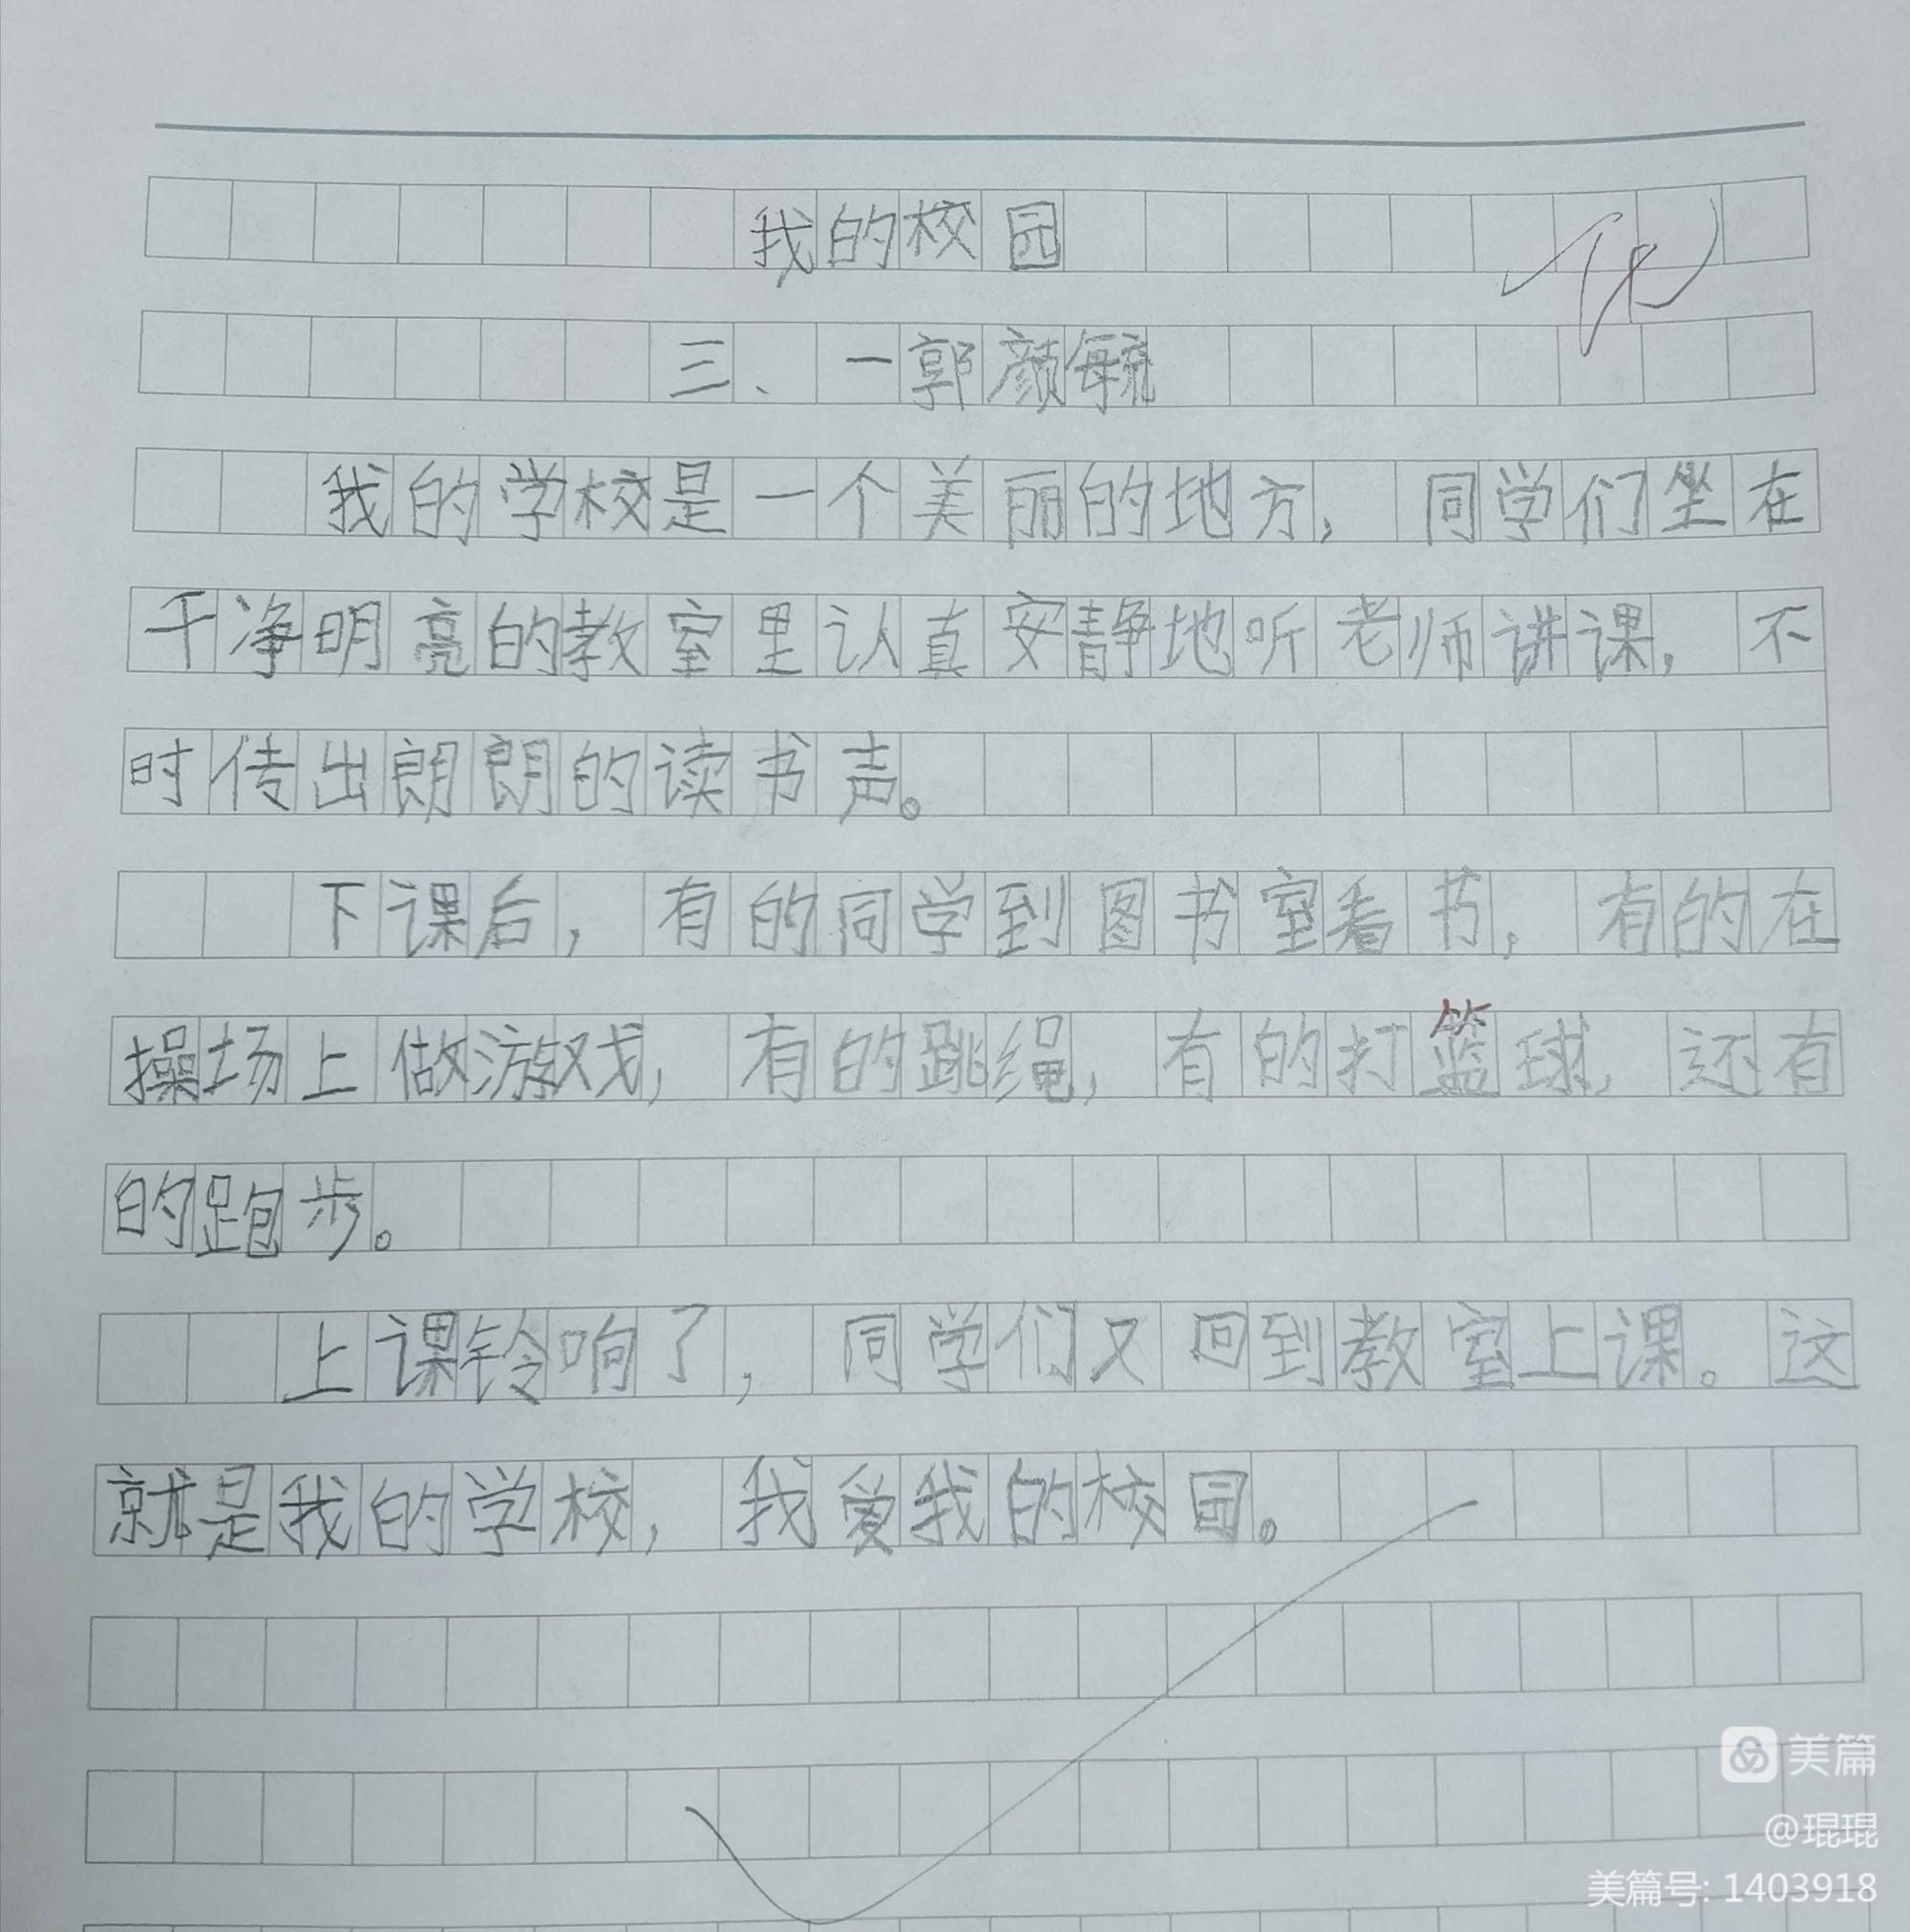 我的校园
三、一郭颜毓
我的学校是一个美丽的地方，同学们坐在
干净明亮的教室里认真安静地听老师讲课，不
时传出朗朗的读书声。
下课后，有的同学到图书室看书，有的在
操场上做游戏，有的跳绳，有的打篮球，还有
的跑步。
上课铃响了，同学们又回到教室上课。这
就是我的学校，我爱我的校园。
美篇
@琨琨
美篇号: 1403918